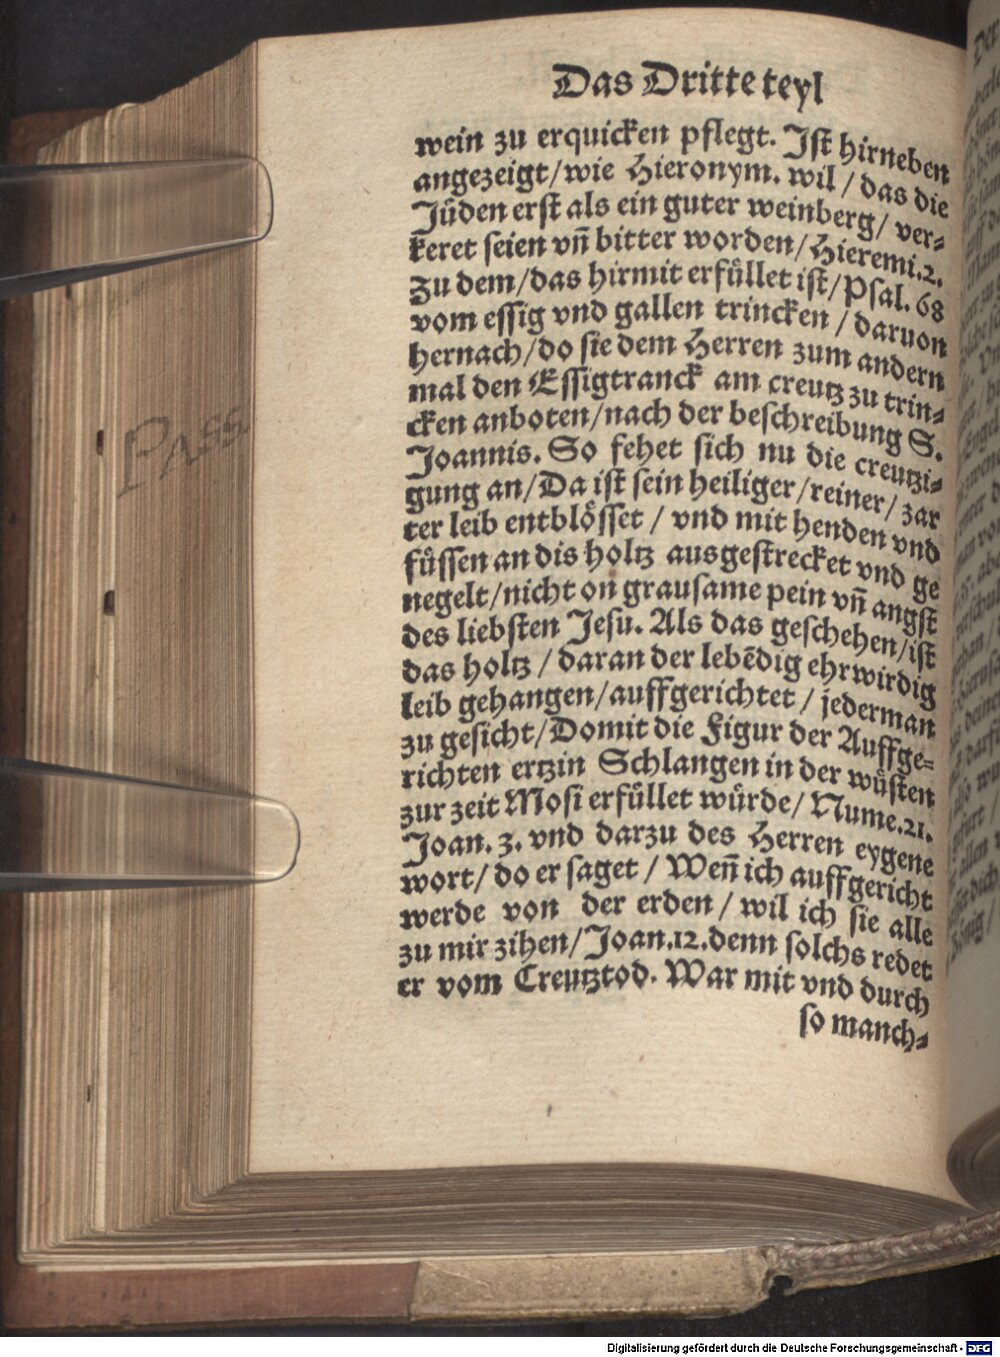 Das Dritte teyl
wein zu erquicken pflegt. Jst hirneben
angezeigt/wie Hieronym. wil / das die
Jüden erst als ein guter weinberg/ ver-
keret seien vn̄ bitter worden/Hieremi.2.
Zu dem/das hirmit erfüllet ist/Psal. 68
vom essig vnd gallen trincken / daruon
hernach/do sie dem Herren zum andern
mal den Essigtranck am creutz zu trin-
cken anboten/nach der beschreibung S.
Joannis. So fehet sich nu die creutzi-
gung an/Da ist sein heiliger/reiner/ zar
ter leib entblösset / vnd mit henden vnd
füssen an dis holtz ausgestrecket vnd ge
negelt/nicht on grausame pein vn̄ angst
des liebsten Jesu. Als das geschehen/ist
das holtz / daran der lebēdig ehrwirdig
leib gehangen/auffgerichtet / jederman
zu gesicht/Domit die Figur der Auffge-
richten ertzin Schlangen in der wüsten
zur zeit Mosi erfüllet würde/ Nume.21.
Joan. 3. vnd darzu des Herren eygene
wort/ do er saget / Wen̄ ich auffgericht
werde von der erden / wil ich sie alle
zu mir zihen/Joan.12.denn solchs redet
er vom Creutztod. War mit vnd durch
so manch-
PASS.
Digitalisierung gefördert durch die Deutsche Forschungsgemeinschaft - DFG